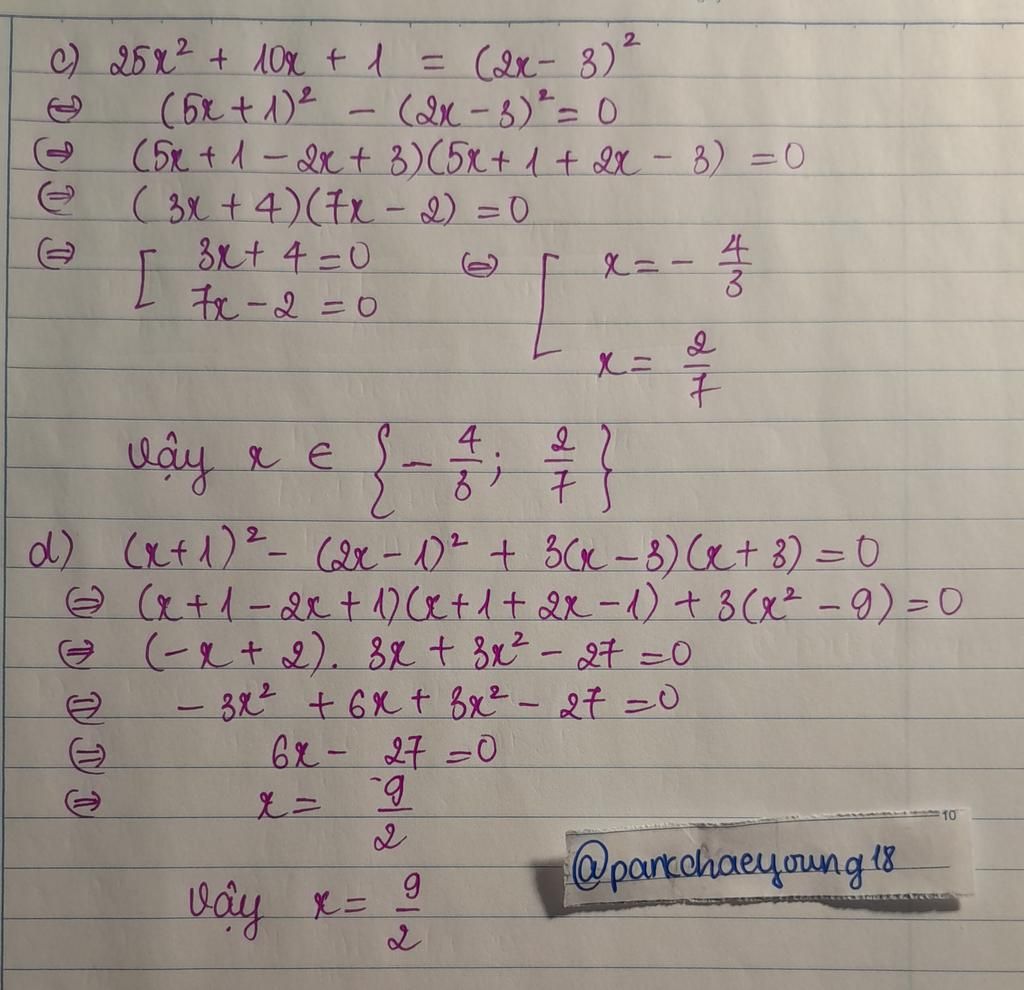 c) 25x² + 10x + 1 = (2x - 3)²
⇔ (5x + 1)² - (2x - 3)² = 0
⇔ (5x + 1 - 2x + 3)(5x + 1 + 2x - 3) = 0
⇔ (3x + 4)(7x - 2) = 0
⇔ [ 3x + 4 = 0 ⇔ [ x = - 4/3
7x - 2 = 0
x = 2/7
Vậy x ∈ { - 4/3 ; 2/7 }
d) (x+1)² - (2x - 1)² + 3(x - 3)(x + 3) = 0
⇔ (x + 1 - 2x + 1)(x + 1 + 2x - 1) + 3(x² - 9) = 0
⇔ (-x + 2). 3x + 3x² - 27 = 0
⇔ - 3x² + 6x + 3x² - 27 = 0
⇔ 6x - 27 = 0
⇔ x = 9/2
Vậy x = 9/2
10
@parkchaeyoung18